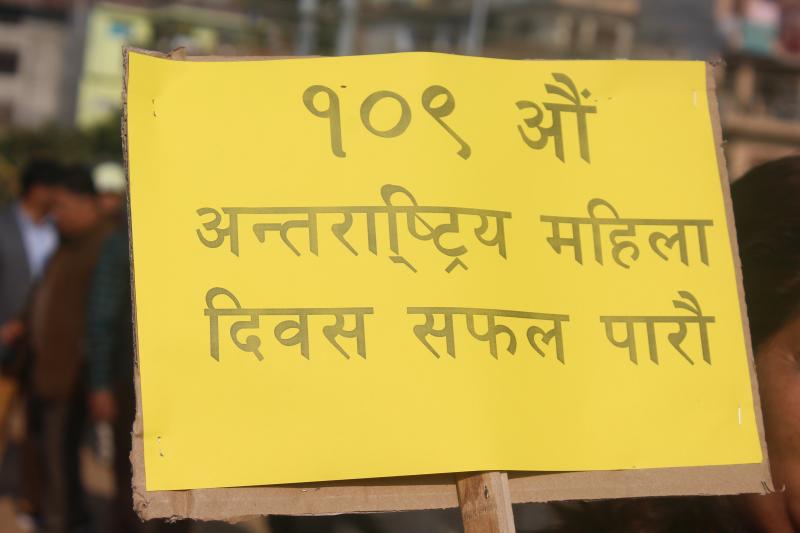 १०९ औं
अन्तर्राष्ट्रिय महिला
दिवस सफल पारौ